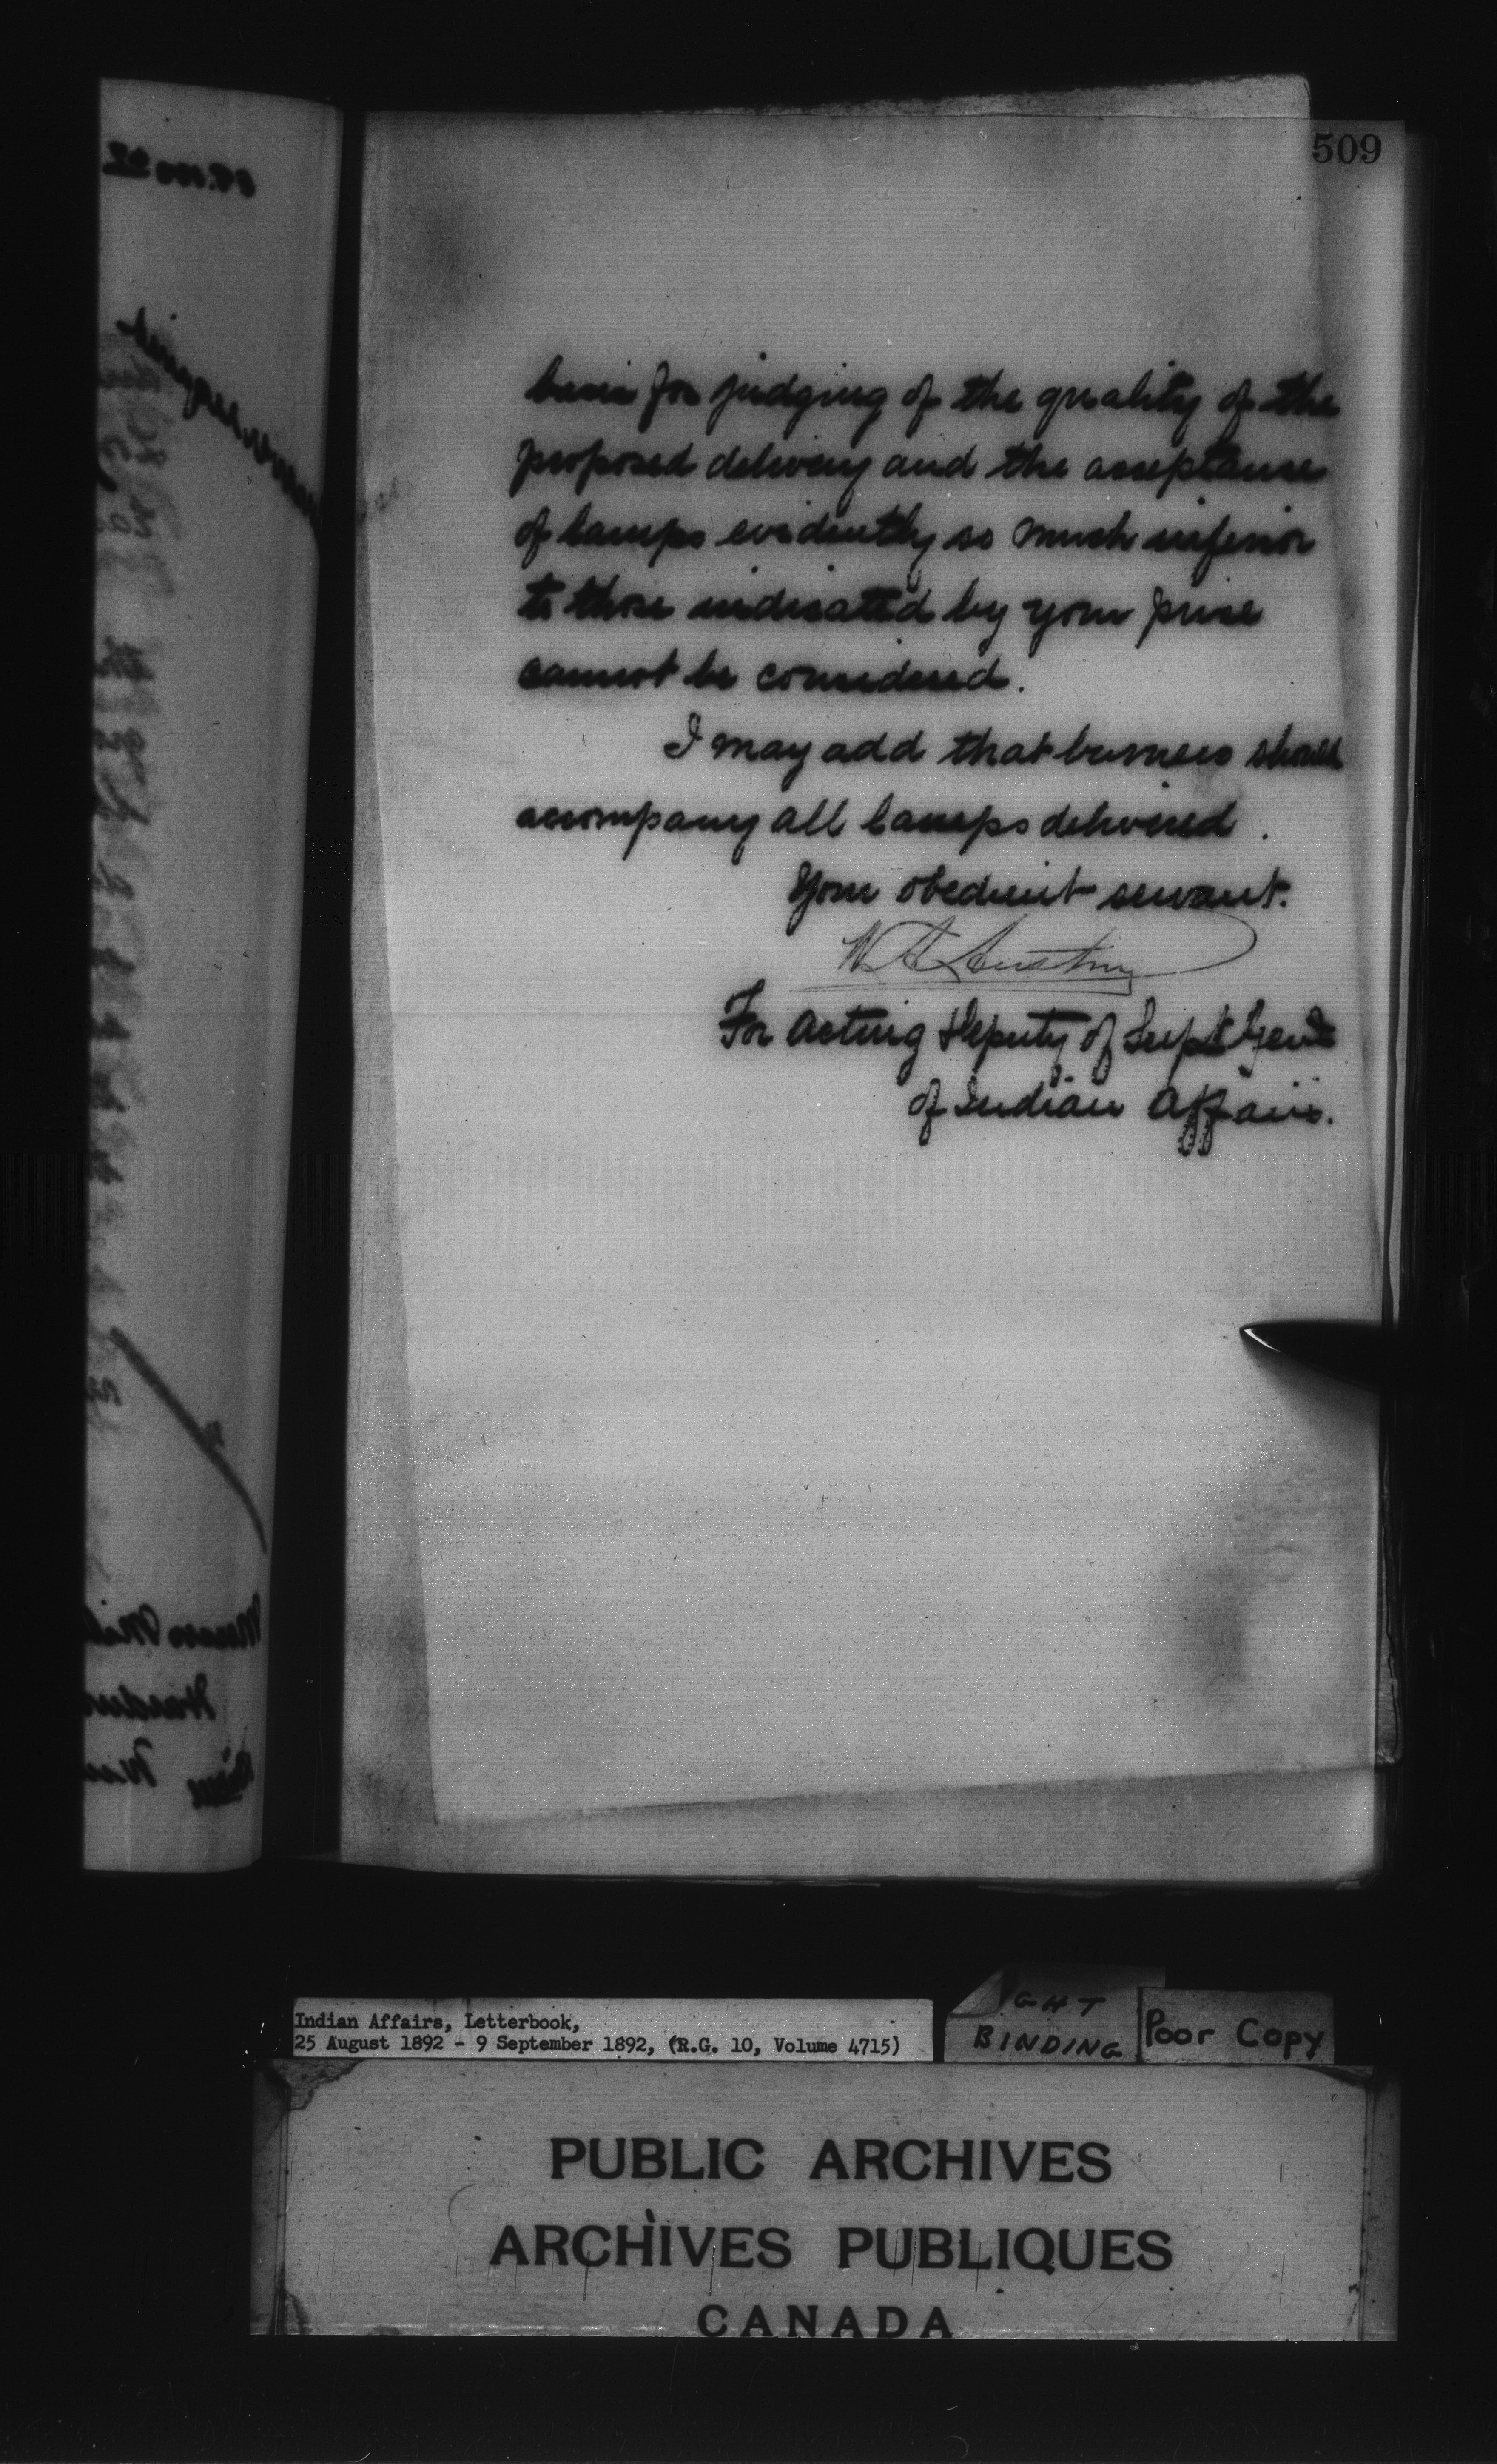 509
basis for judging of the quality of the
proposed delivery and the acceptance
of lamps evidently so much inferior
to those indicated by your price
cannot be considered.
I may add that burners should
accompany all lamps delivered.
Your obedient servant.
W A Austin
For Acting Deputy of Supt Genl
of Indian Affairs.
Indian Affairs, Letterbook,
25 August 1892 - 9 September 1892, (R.G. 10, Volume 4715)
BINDING
Poor Copy
PUBLIC ARCHIVES
ARCHIVES PUBLIQUES
CANADA